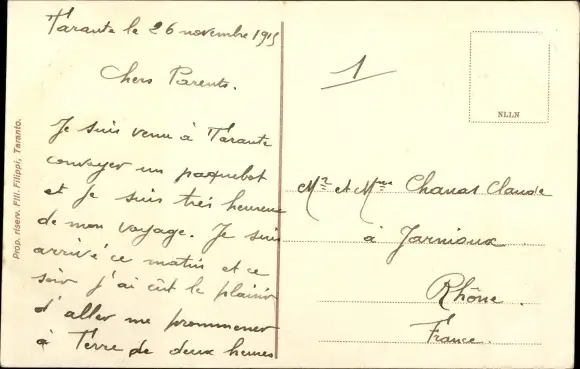 Tarante le 26 novembre 1915
Chers Parents.
Je suis venu à Tarante
convoyer un paquebot
et je suis très heureux
de mon voyage. Je suis
arrivé ce matin et ce
soir j'ai eût le plaisir
d'aller me prommener
à Terre de deux heures
Prop. riserv. Flli. Filippi, Taranto.
1
NLLN
Mr et Mme Chanas Claude
à Jarnioux
Rhône.
France.